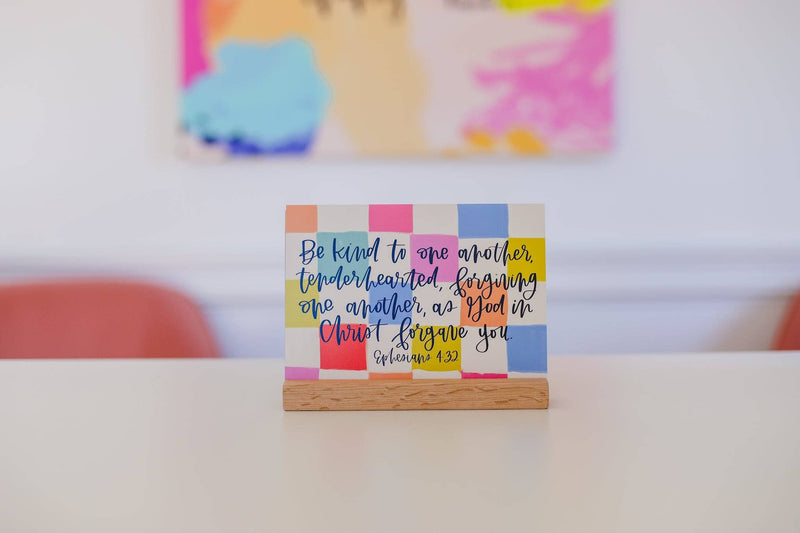 Be kind to one another,
tenderhearted, forgiving
one another, as God in
Christ forgave you.
Ephesians 4:32